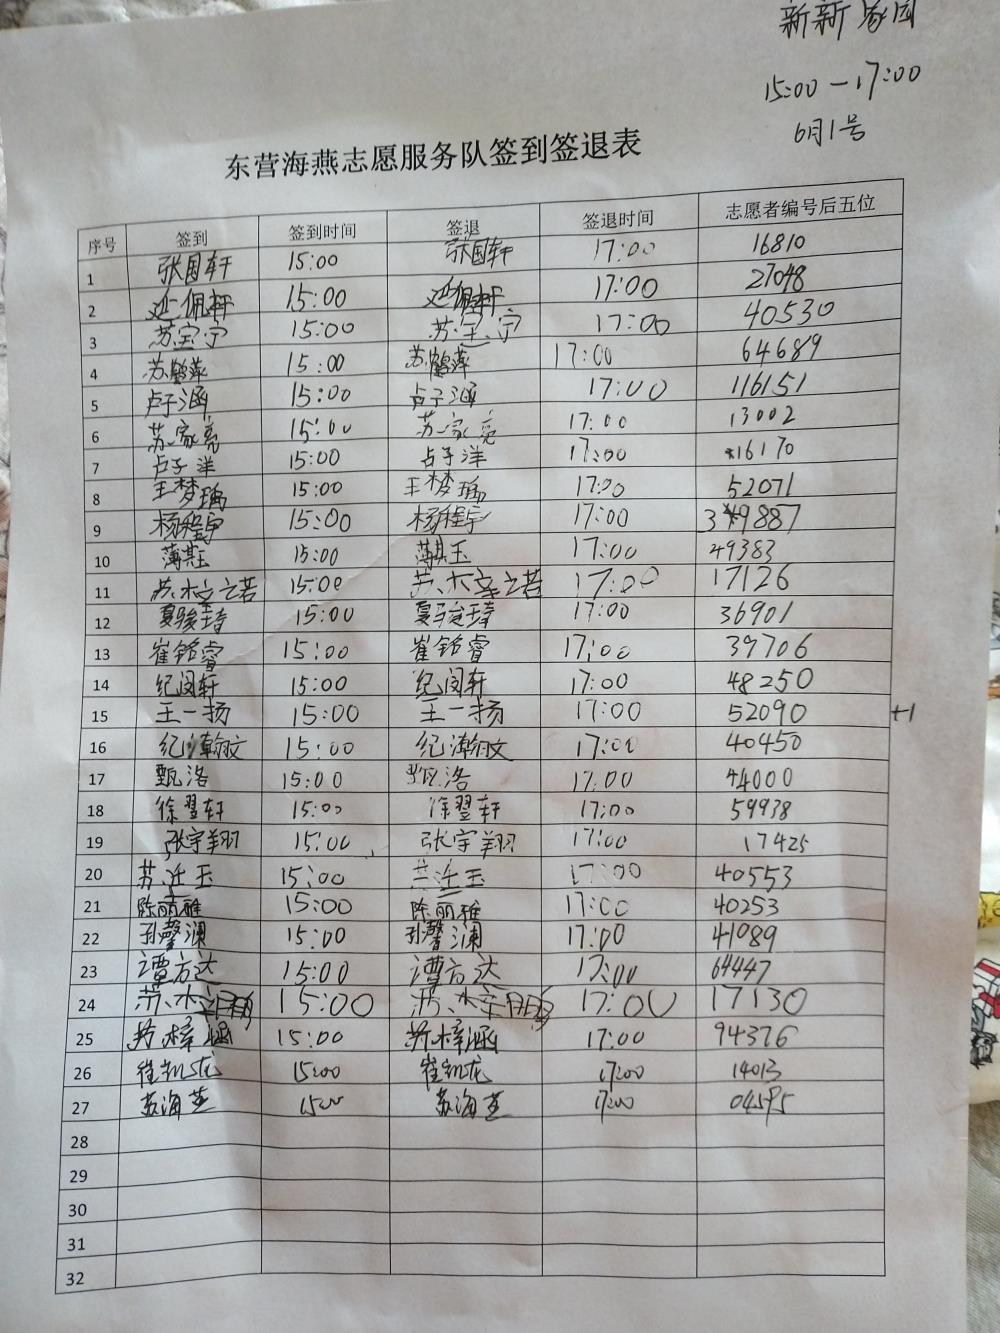 新新家园
15:00—17:00
6月1号
东营海燕志愿服务队签到签退表
序号 签到 签到时间 签退 签退时间 志愿者编号后五位
1 张国轩 15:00 张国轩 17:00 16810
2 延佩轩 15:00 延佩轩 17:00 27048
3 苏宝宁 15:00 苏宝宁 17:00 40530
4 苏鹤萍 15:00 苏鹤萍 17:00 64689
5 卢子涵 15:00 卢子涵 17:00 116151
6 苏家亮 15:00 苏家亮 17:00 13002
7 卢子洋 15:00 占子洋 17:00 16170
8 王梦瑀 15:00 王梦瑀 17:00 52071
9 杨程宇 15:00 杨程宇 17:00 39887
10 薄其玉 15:00 薄其玉 17:00 49383
11 苏木之若 15:00 苏木之若 17:00 17126
12 夏骏琦 15:00 夏骏琦 17:00 36901
13 崔铭睿 15:00 崔铭睿 17:00 39706
14 纪闵轩 15:00 纪闵轩 17:00 48250
15 王一扬 15:00 王一扬 17:00 52090 +1
16 纪瀚文 15:00 纪瀚文 17:00 40450
17 甄洛 15:00 甄洛 17:00 44000
18 徐翌轩 15:00 徐翌轩 17:00 59938
19 张宇翔 15:00 张宇翔 17:00 17425
20 苏迁玉 15:00 苏迁玉 17:00 40553
21 陈丽雅 15:00 陈丽雅 17:00 40253
22 孙馨澜 15:00 孙馨澜 17:00 41089
23 谭方达 15:00 谭方达 17:00 64447
24 苏木 15:00 苏木 17:00 17130
25 梓涵 15:00 梓涵 17:00 94376
26 崔凯龙 15:00 崔凯龙 17:00 14013
27 苏海芝 15:00 苏海芝 17:00 04595
28
29
30
31
32